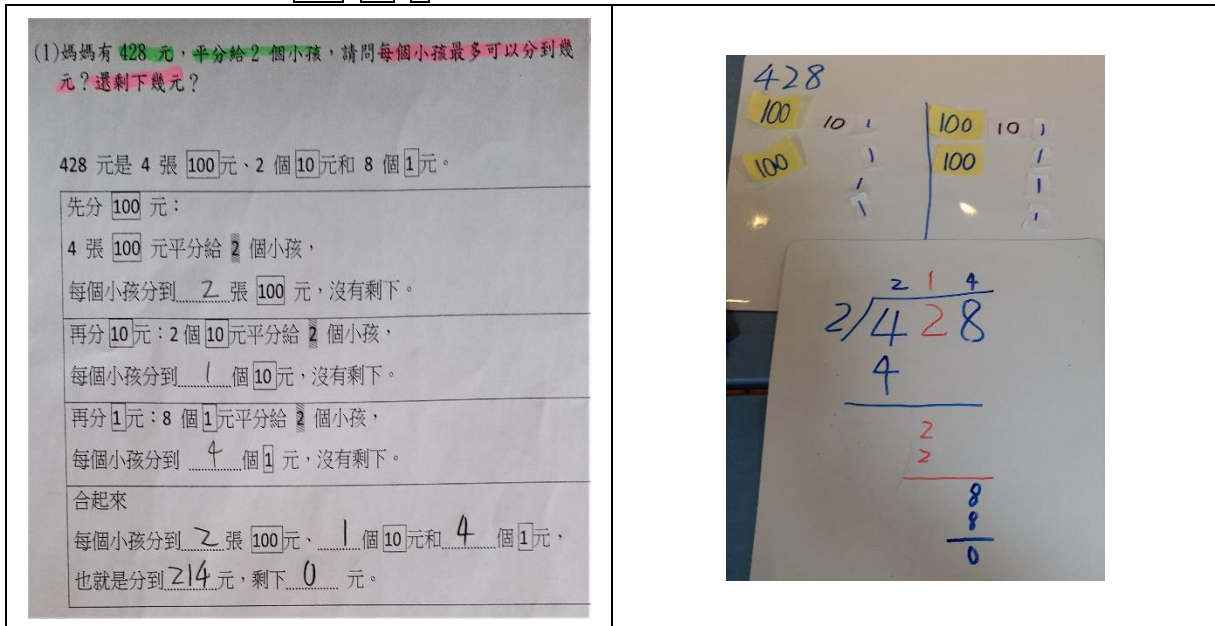 (1)媽媽有 428 元，平分給 2 個小孩，請問每個小孩最多可以分到幾
元？還剩下幾元？
428 元是 4 張 100元、2 個 10元和 8 個 1元。
先分 100 元：
4 張 100 元平分給 2 個小孩，
每個小孩分到 2 張 100 元，沒有剩下。
再分 10元：2 個 10元平分給 2 個小孩，
每個小孩分到 1 個 10元，沒有剩下。
再分 1元：8 個 1元平分給 2 個小孩，
每個小孩分到 4 個 1 元，沒有剩下。
合起來
每個小孩分到 2 張 100元、 1 個 10元和 4 個 1元，
也就是分到 214 元，剩下 0 元。
428
100 10 1 100 10 1
100 1 100 1
1 1
1 1
2 1 4
2/428
4
2
2
8
8
0